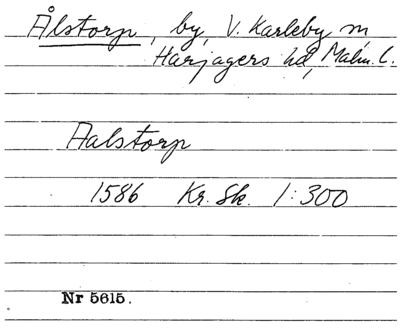 Ålstorp, by, V. Karleby sn,
Harjagers hd, Malm. l.
Aalstorp
1586 Kr. Sk. 1:300
Nr 5615.